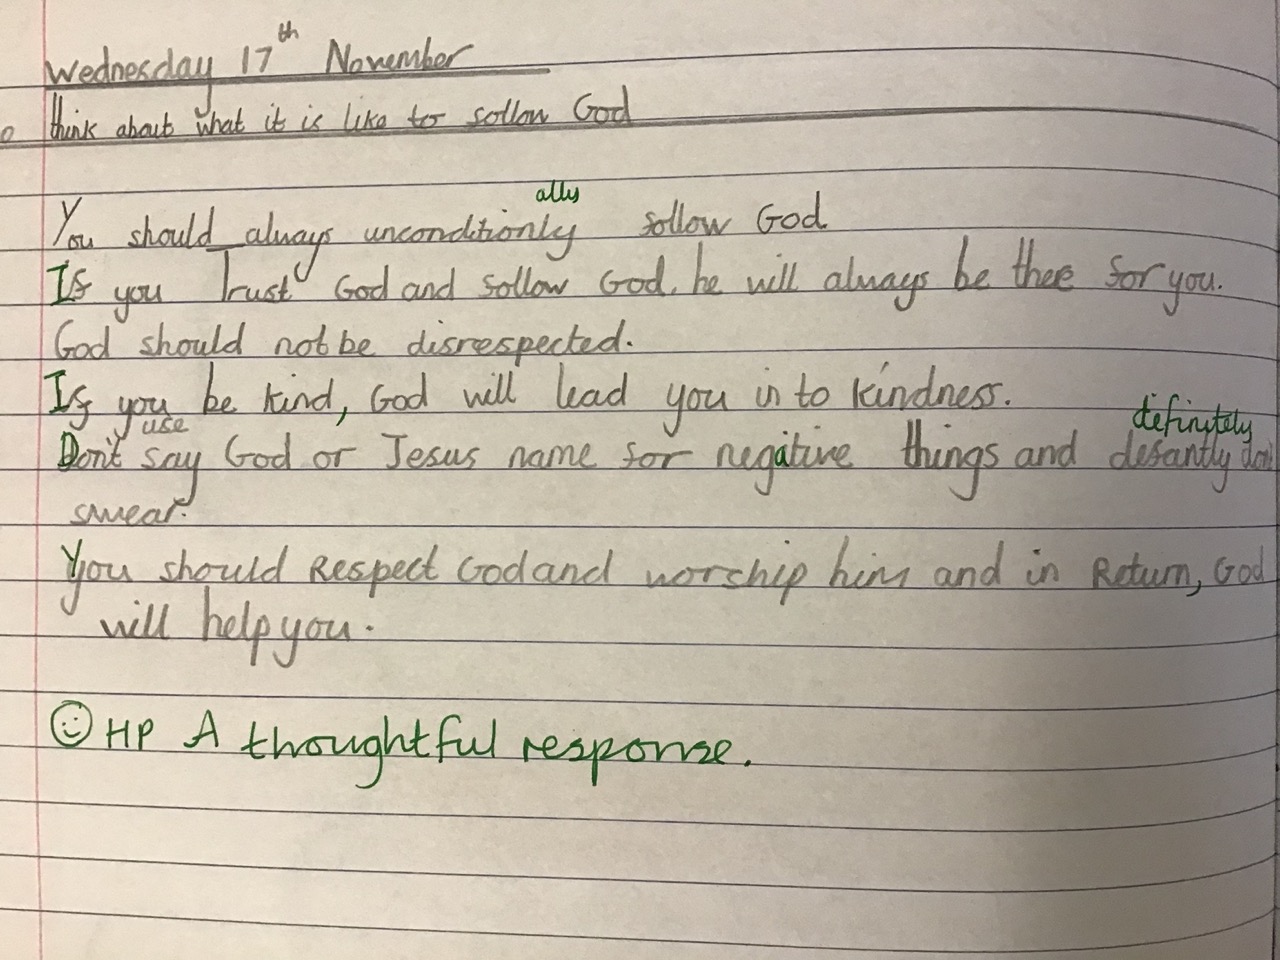 Wednesday 17th November
think about what it is like to follow God
ally
You should always unconditionly follow God.
If you Trust God and follow God, he will always be there for you.
God should not be disrespected.
If you be kind, God will lead you in to kindness.
use definitely
Don't say God or Jesus name for negative things and defantly don't
swear.
You should Respect God and worship him and in Return, God
will help you.
☺ HP A thoughtful response.